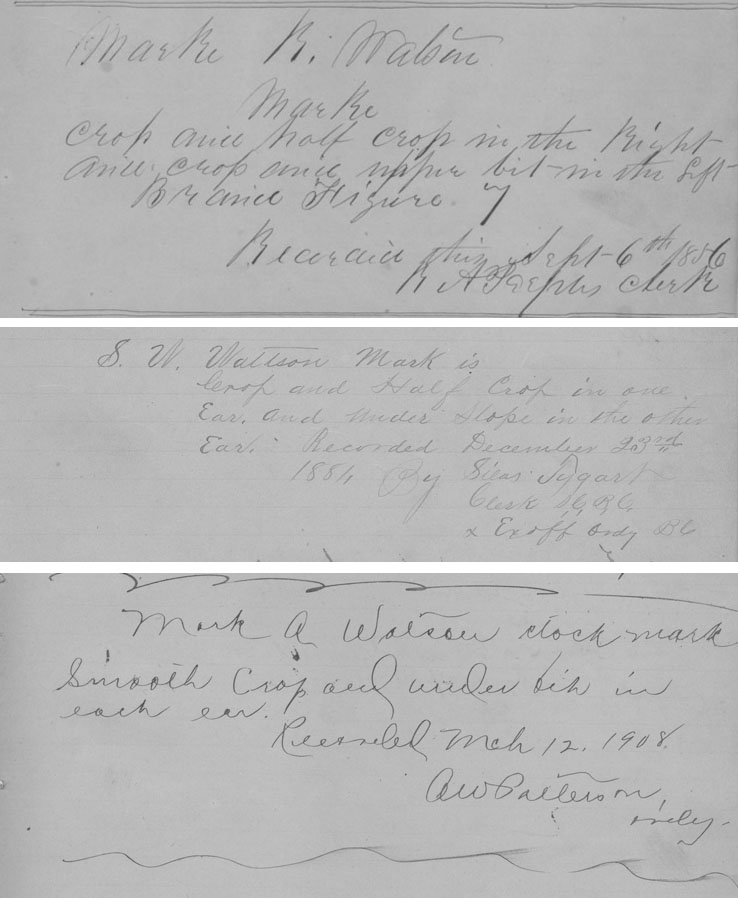 Marke R. Watson
Marke
Crop and half crop in the Right
and crop and upper bit in the Left
Brand Figure 7
Recorded this Sept 6th 1856
R A Peeples Clerk
S. W. Wattson Mark is
Crop and Half Crop in one
Ear. and under slope in the other
Ear. Recorded December 23rd
1884 By Silas Tygart
Clerk S.C.B.C.
& Exoff Ordy BC
Mark A Watson stock mark
Smooth Crop and under bit in
each ear.
Recorded Mch 12. 1908.
A W Patterson,
ordy.